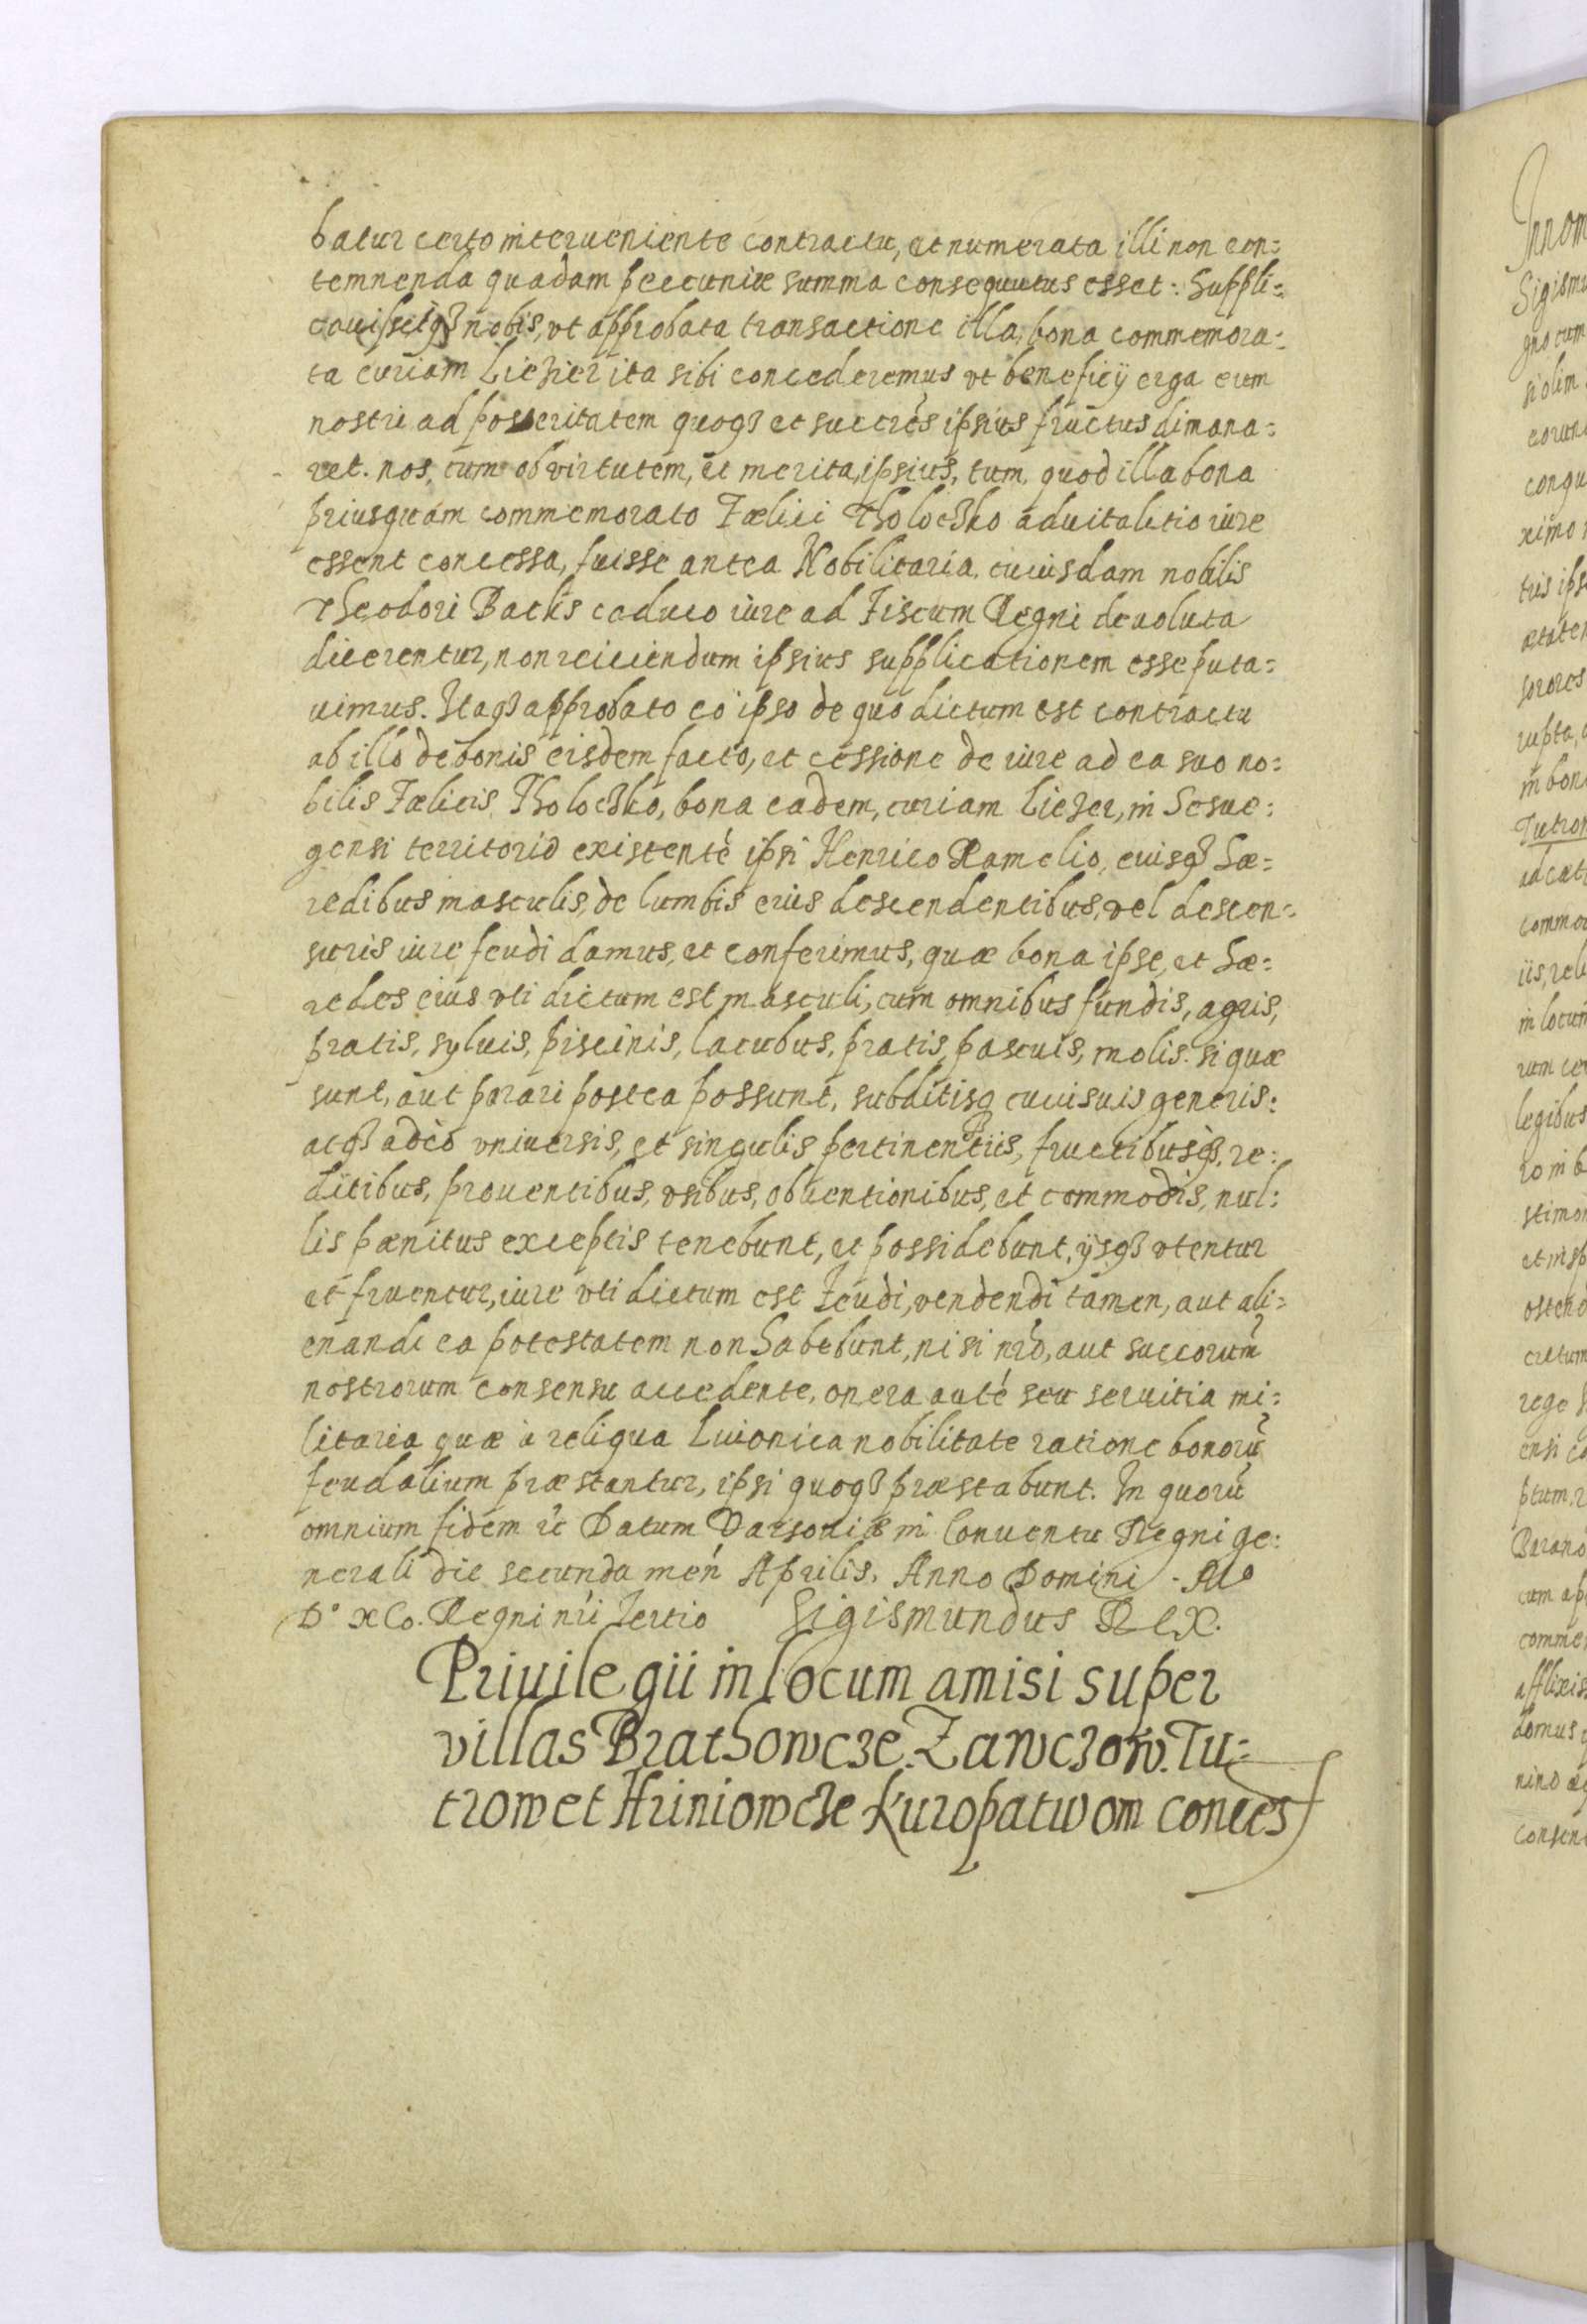 batur certo interueniente contractu, et numerata illi non con:
temnenda quadam pecuniæ summa consequutus esset: Suppli:
cauissetqꝫ nobis, vt approbata transactione illa, bona commemora:
ta curiam Liezier ita sibi concederemus vt beneficÿ erga eum
nostri ad posteritatem quoqꝫ et succres ipsius fructus dimana:
ret. nos, tum ob virtutem, et merita, ipsius, tum, quod illa bona
priusquam commemorato Fælici Tholoczko aduitalitio iure
essent concessa, fuisse antea Nobilitaria, cuiusdam nobilis
Theodori Backs caduco iure ad Fiscum Regni deuoluta
dicerentur, non reiiciendum ipsius supplicationem esse puta:
uimus. Itaqꝫ approbato eo ipso de quo dictum est contractu
ab illo de bonis eisdem facto, et cessione de iure ad ea suo no:
bilis Fælicis Tholoczko, bona eadem, curiam Liezer, in Sesue:
gensi territorio existente ipsi Henrico Ramelio, eiusqꝫ hæ:
redibus masculis, de lumbis eius descendentibus, vel descen:
suris iure feudi damus, et conferimus, quæ bona ipse, et hæ:
redes eius vti dictum est masculi, cum omnibus fundis, agris,
pratis, syluis, piscinis, lacubus, pratis, pascuis, molis. si quæ
sunt, aut parari postea possunt, subditisq cuiusuis generis:
atqꝫ adeo vniuersis, et singulis pertinentiis, fructibusqꝫ, re:
ditibus, prouentibus, vsibus, obuentionibus, et commodis, nul:
lis pænitus exceptis tenebunt, et possidebunt, ÿsqꝫ vtentur
et fruentur, iure vti dictum est Feudi, vendendi tamen, aut ali:
enandi ea potestatem non habebunt, nisi nro, aut succorum
nostrorum consensu accedente, onera aute seu seruitia mi:
litaria quæ à reliqua Liuonica nobilitate ratione bonorū
feudalium præstantur, ipsi quoqꝫ præstabunt. In quorū
omnium fidem &c Datum Varsouiæ in Conuentu Regni ge:
nerali die secunda men Aprilis, Anno Domini . Mo
Do xCo. Regni nri Tertio Sigismundus Rex.
Priuilegii in locum amisi super
villas Brathowcze. Zawczow. Tu:
trow et Hriniowcze Kuropatwom conces